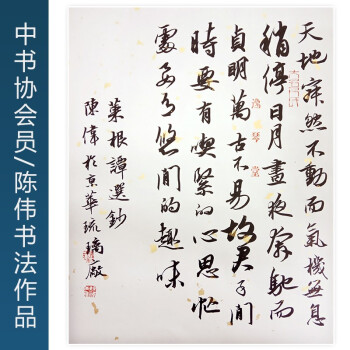 中书协会员/陈伟书法作品
天地寂然不動而氣機無息
稍停日月晝夜奔馳而
貞明萬古不易故君子閒
時要有喫緊的心思忙
處要有悠閒的趣味
菜根譚選鈔
陳偉於京華琉璃廠